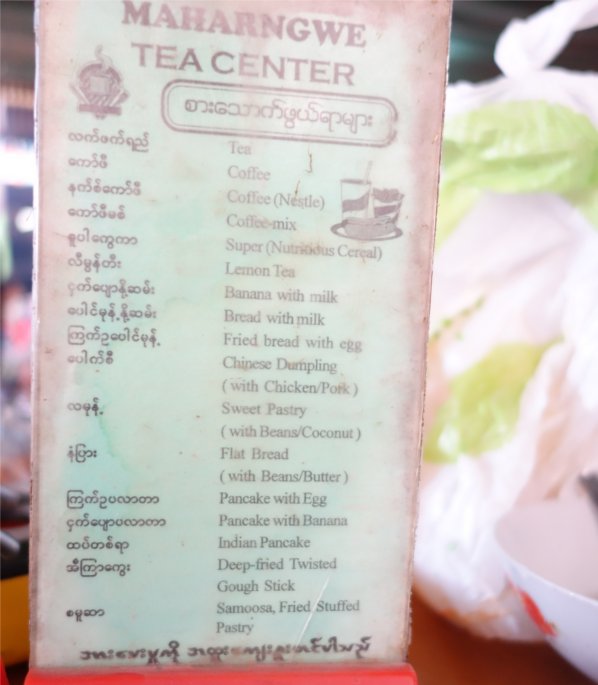 MAHARNGWE
TEA CENTER
စားသောက်ဖွယ်ရာများ
လက်ဖက်ရည် Tea
ကော်ဖီ Coffee
နက်စ်ကော်ဖီ Coffee (Nestle)
ကော်ဖီမစ် Coffee-mix
စူပါကွေကာ Super (Nutritious Cereal)
လီမွန်တီး Lemon Tea
ငှက်ပျောနို့ဆမ်း Banana with milk
ပေါင်မုန့်နို့ဆမ်း Bread with milk
ကြက်ဥပေါင်မုန့် Fried bread with egg
ပေါက်စီ Chinese Dumpling
( with Chicken/Pork )
လမုန့် Sweet Pastry
( with Beans/Coconut )
နံပြား Flat Bread
( with Beans/Butter )
ကြက်ဥပလာတာ Pancake with Egg
ငှက်ပျောပလာတာ Pancake with Banana
ထပ်တစ်ရာ Indian Pancake
အီကြာကွေး Deep-fried Twisted
Gough Stick
စမူဆာ Samoosa, Fried Stuffed
Pastry
အားပေးမှုကို အထူးကျေးဇူးတင်ပါသည်